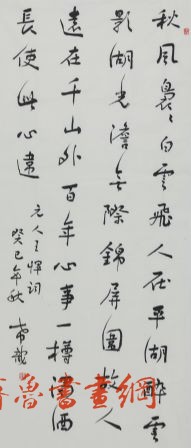 秋風裊〻白雲飛人在平湖醉雲
影湖光澹無際錦屏圍故人
遠在千山外百年心事一樽濁酒
長使此心違
元人王惲詞
癸巳年秋
魯書畫網